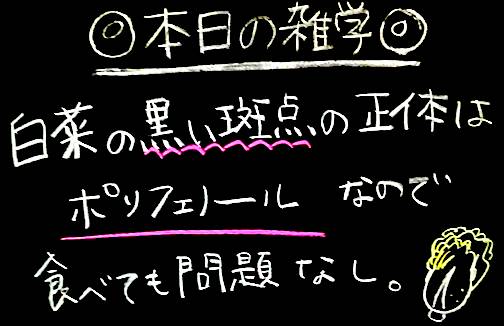 ◎本日の雑学◎
白菜の黒い斑点の正体は
ポリフェノール なので
食べても問題なし。